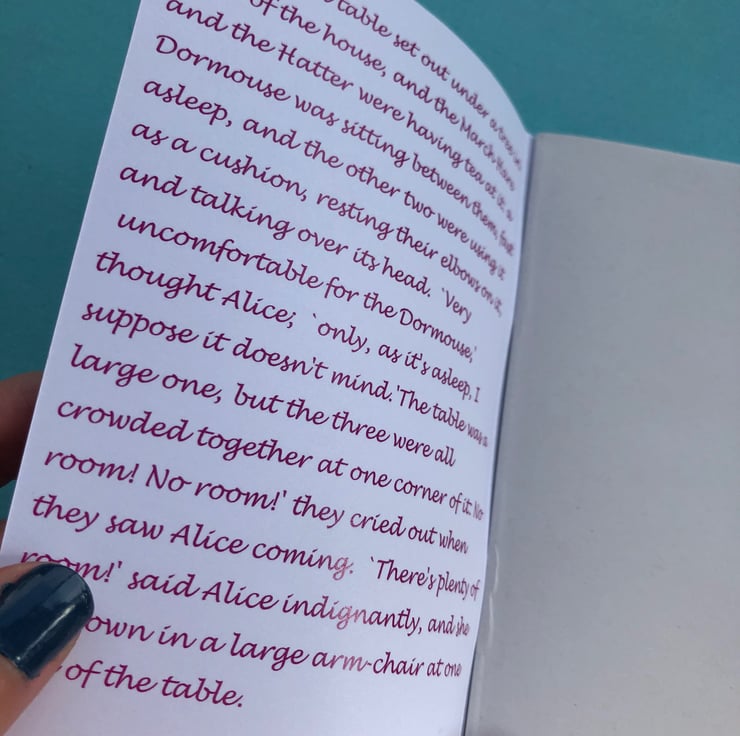 table set out under a tree in
of the house, and the March Hare
and the Hatter were having tea at it: a
Dormouse was sitting between them, fast
asleep, and the other two were using it
as a cushion, resting their elbows on it,
and talking over its head. `Very
uncomfortable for the Dormouse,'
thought Alice; `only, as it's asleep, I
suppose it doesn't mind.'The table was a
large one, but the three were all
crowded together at one corner of it: No
room! No room!' they cried out when
they saw Alice coming. `There's plenty of
room!' said Alice indignantly, and she
own in a large arm-chair at one
of the table.